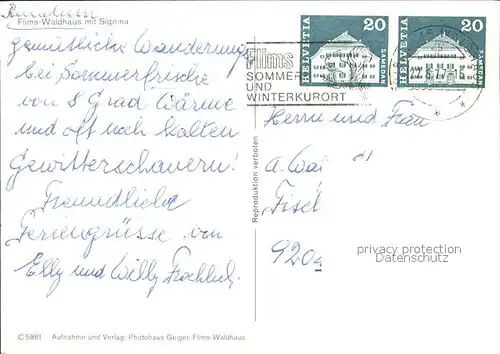 Flims-Waldhaus mit Signina
gemütliche Wanderungen
bei Sommerfrische
von 8 Grad Wärme
und oft noch kalten
Gewitterschauern!
Freundliche
Feriengrüsse von
Elly und Willy Froehlich.
C 5881 Aufnahme und Verlag: Photohaus Geiger, Flims-Waldhaus
Reproduktion verboten
Flims
SOMMER
UND
WINTERKURORT
HELVETIA 20 SAMEDAN
HELVETIA 20 SAMEDAN
Herrn und Frau
privacy protection
Datenschutz